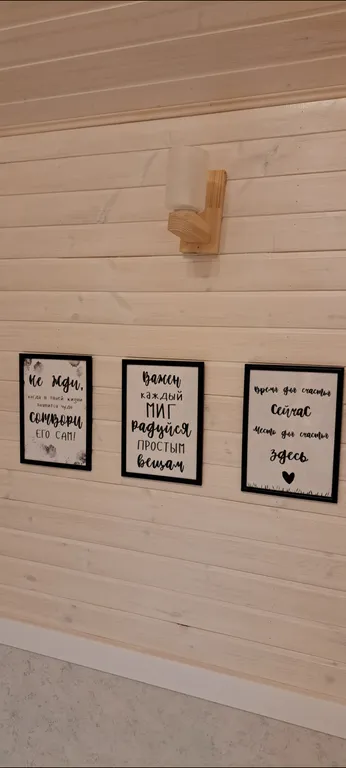 Не жди,
когда в твоей жизни
появится чудо
СОТВОРИ
ЕГО САМ!
Важен
КАЖДЫЙ
МИГ
Радуйся
ПРОСТЫМ
вещам
Время для счастья
Сейчас
Место для счастья
Здесь